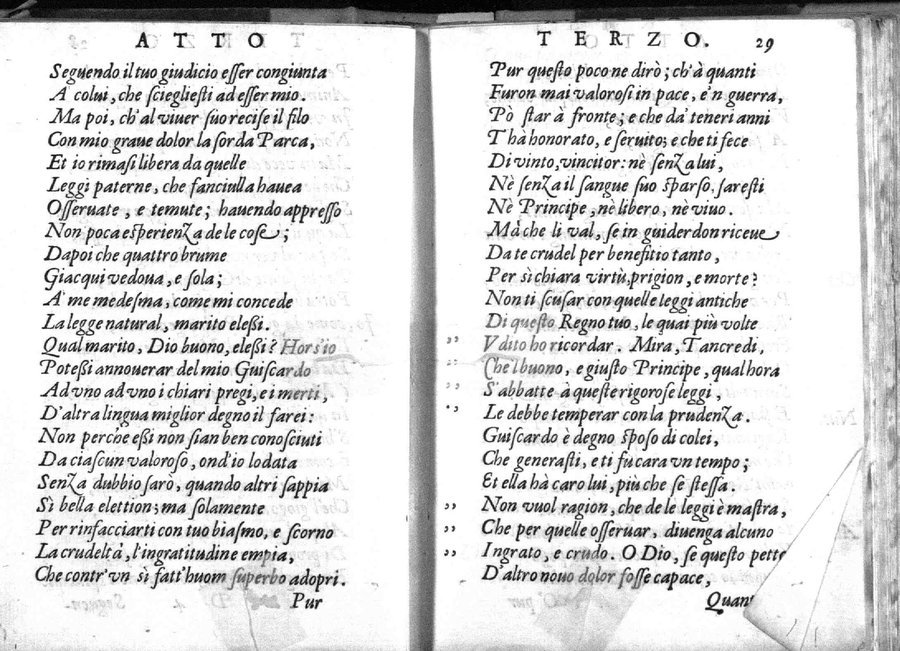 ATTO
Seguendo il tuo giudicio esser congiunta
A' colui, che sciegliesti ad esser mio.
Ma poi, ch'al viuer suo recise il filo
Con mio graue dolor la sorda Parca,
Et io rimasi libera da quelle
Leggi paterne, che fanciulla hauea
Osseruate, e temute; hauendo appresso
Non poca esperienza de le cose;
Dapoi che quattro brume
Giacqui vedoua, e sola;
A' me medesma, come mi concede
La legge natural, marito elessi.
Qual marito, Dio buono, elessi? Hors'io
Potessi annouerar del mio Guiscardo
Ad vno ad vno i chiari pregi, e i merti,
D'altra lingua miglior degno il farei:
Non perche essi non sian ben conosciuti
Da ciascun valoroso, ond'io lodata
Senza dubbio sarò, quando altri sappia
Sì bella elettion; ma solamente
Per rinfacciarti con tuo biasmo, e scorno
La crudeltà, l'ingratitudine empia,
Che contr'vn sì fatt'huom superbo adopri.
Pur
TERZO. 29
Pur questo poco ne dirò; ch'à quanti
Furon mai valorosi in pace, e'n guerra,
Pò star à fronte; e che da' teneri anni
T'hà honorato, e seruito; e che ti fece
Di vinto, vincitor: nè senza lui,
Nè senza il sangue suo sparso, saresti
Nè Principe, nè libero, nè viuo.
Mà che li val, se in guiderdon riceue
Da te crudel per benefitio tanto,
Per sì chiara virtù, prigion, e morte?
Non ti scusar con quelle leggi antiche
Di questo Regno tuo, le quai più volte
,, Vdito ho ricordar. Mira, Tancredi,
,, Che'l buono, e giusto Principe, qualhora
,, S'abbatte à queste rigorose leggi,
,, Le debbe temperar con la prudenza.
Guiscardo è degno sposo di colei,
Che generasti, e ti fu cara vn tempo;
Et ella hà caro lui, più che se stessa.
,, Non vuol ragion, che de le leggi è mastra,
,, Che per quelle osseruar, diuenga alcuno
,, Ingrato, e crudo. O Dio, se questo pette
D'altro nouo dolor fosse capace,
Quan